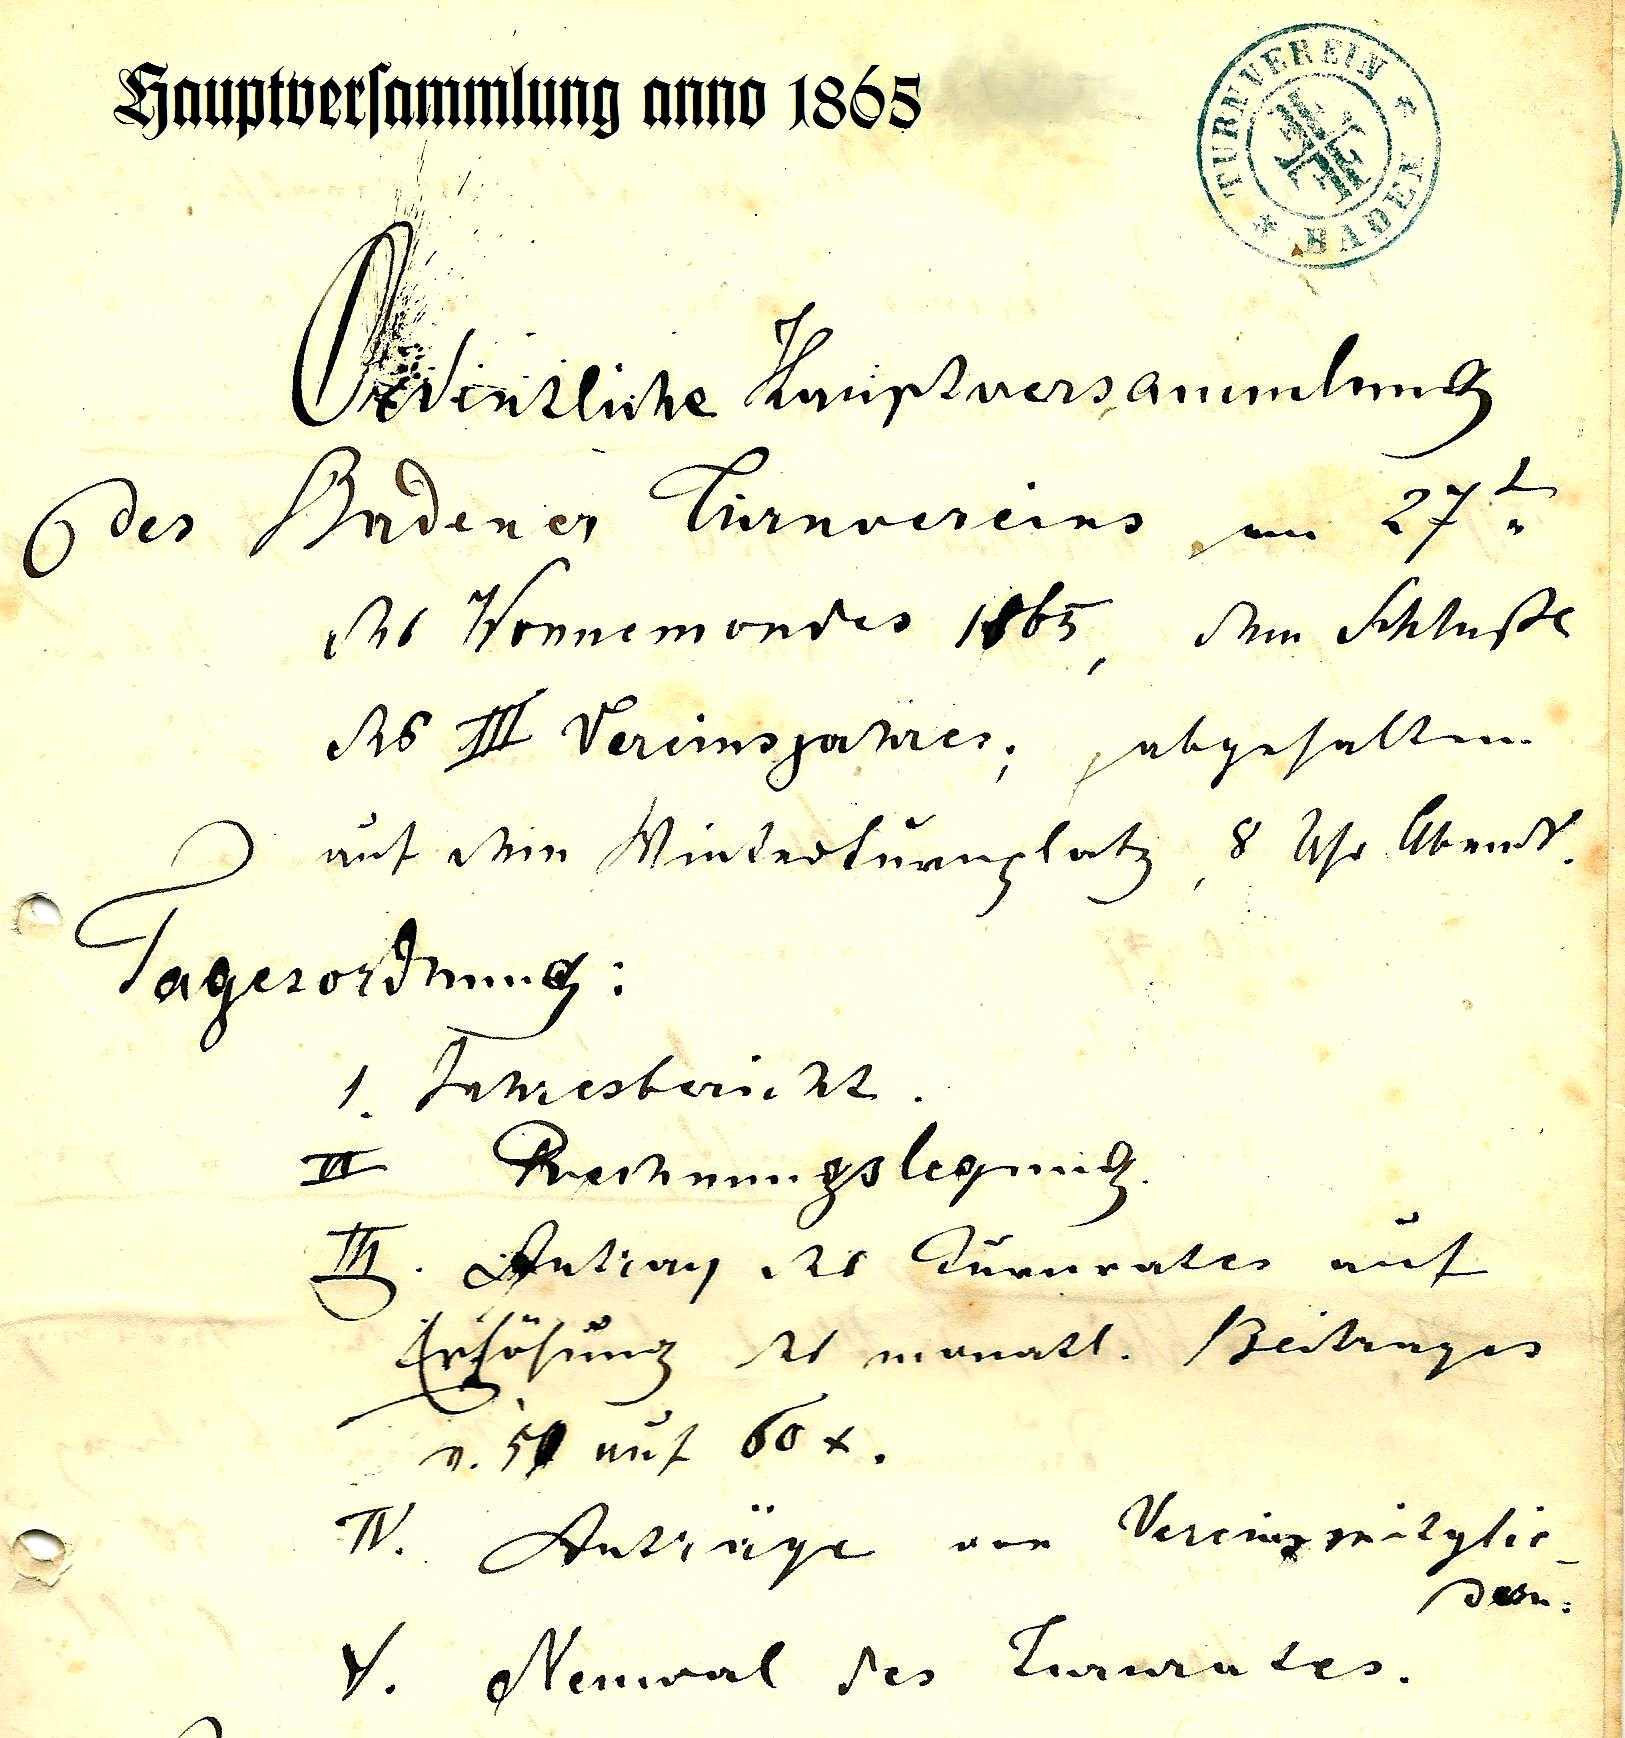 Hauptversammlung anno 1865
TURNVEREIN
BADEN
Ordentliche Hauptversammlung
des Badener Turnvereins am 27t
des Wonnemondes 1865, dem Schluße
des III Vereinsjahres, abgehalten
auf dem Winterturnplatz, 8 Uhr Abends.
Tagesordnung:
1. Jahresbericht.
II Rechnungslegung.
III. Antrag des Turnrates auf
Erhöhung des monatl. Beitrages
v. auf 60 x.
IV. Anträge von Vereinsmitglie-
dern.
V. Neuwal des Turnrates.